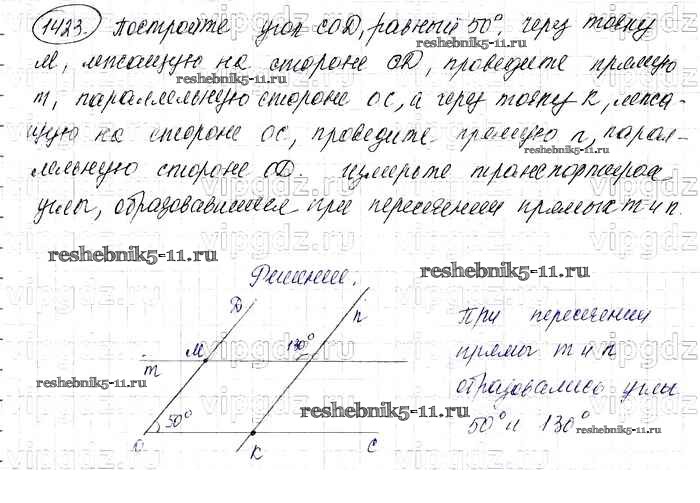 1423. Постройте угол COD, равный 50°. Через точку
М, лежащую на стороне OD, проведите прямую
m, параллельную стороне ОС, а через точку К, лежа-
щую на стороне ОС, проведите прямую n, парал-
лельную стороне OD. Измерьте транспортиром
углы, образовавшиеся при пересечении прямых m и n.
reshebnik5-11.ru
reshebnik5-11.ru
reshebnik5-11.ru
reshebnik5-11.ru
Решение.
D
n
При пересечении
М
130°
прямы m и n
m
reshebnik5-11.ru
образовались углы
reshebnik5-11.ru
50°
50° и 130°
reshebnik5-11.ru
О
К
С
vipgdz